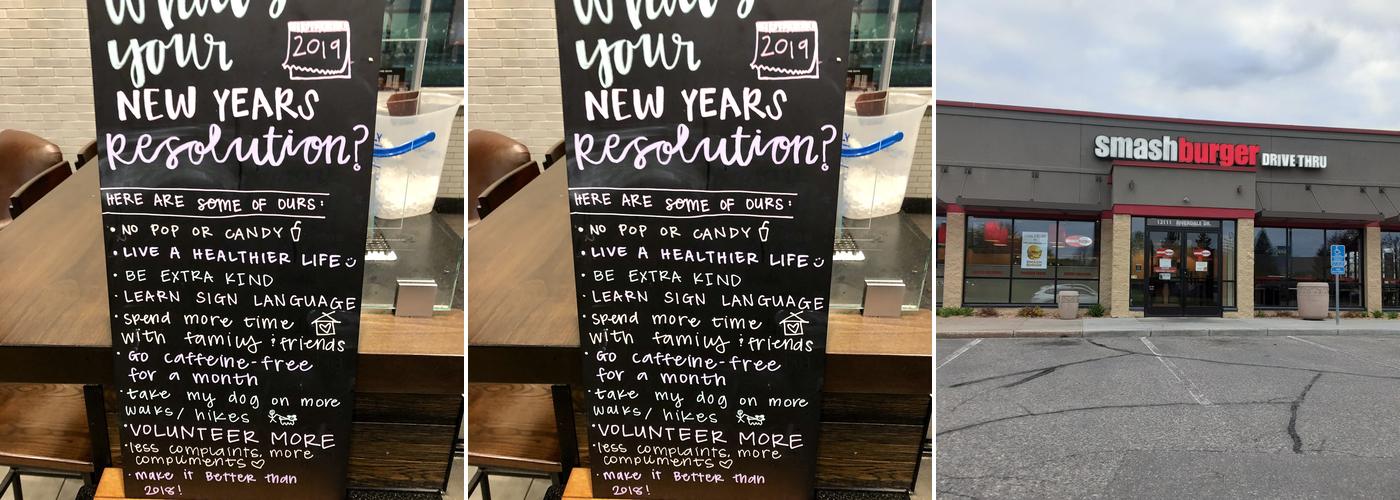 What's
your
2019
NEW YEARS
resolution?
HERE ARE SOME OF OURS:
• NO POP OR CANDY
• LIVE A HEALTHIER LIFE
• BE EXTRA KIND
• LEARN SIGN LANGUAGE
• spend more time
with family & friends
• Go caffeine-free
for a month
• take my dog on more
walks/hikes
• VOLUNTEER MORE
• less complaints, more
compliments ♡
• make it Better than
2018!
What's
your
2019
NEW YEARS
resolution?
HERE ARE SOME OF OURS:
• NO POP OR CANDY
• LIVE A HEALTHIER LIFE
• BE EXTRA KIND
• LEARN SIGN LANGUAGE
• spend more time
with family & friends
• Go caffeine-free
for a month
• take my dog on more
walks/hikes
• VOLUNTEER MORE
• less complaints, more
compliments ♡
• make it Better than
2018!
smashburger DRIVE THRU
RIVERDALE DR.